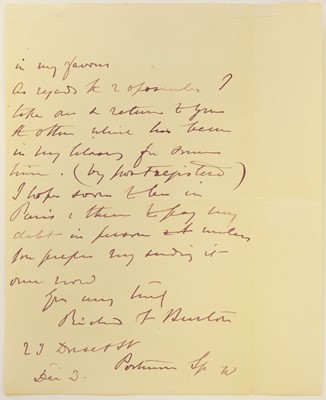 in my favour
As regards the 2 opuscules I
take one & return to you
the other which has been
in my library for some
time. (by post registered)
I hope soon to be in
Paris & there to pay my
debt in person unless
you prefer my sending it
now
Yrs very truly
Richard F Burton
23 Dorset St
Portman Sq W
Dec 3.